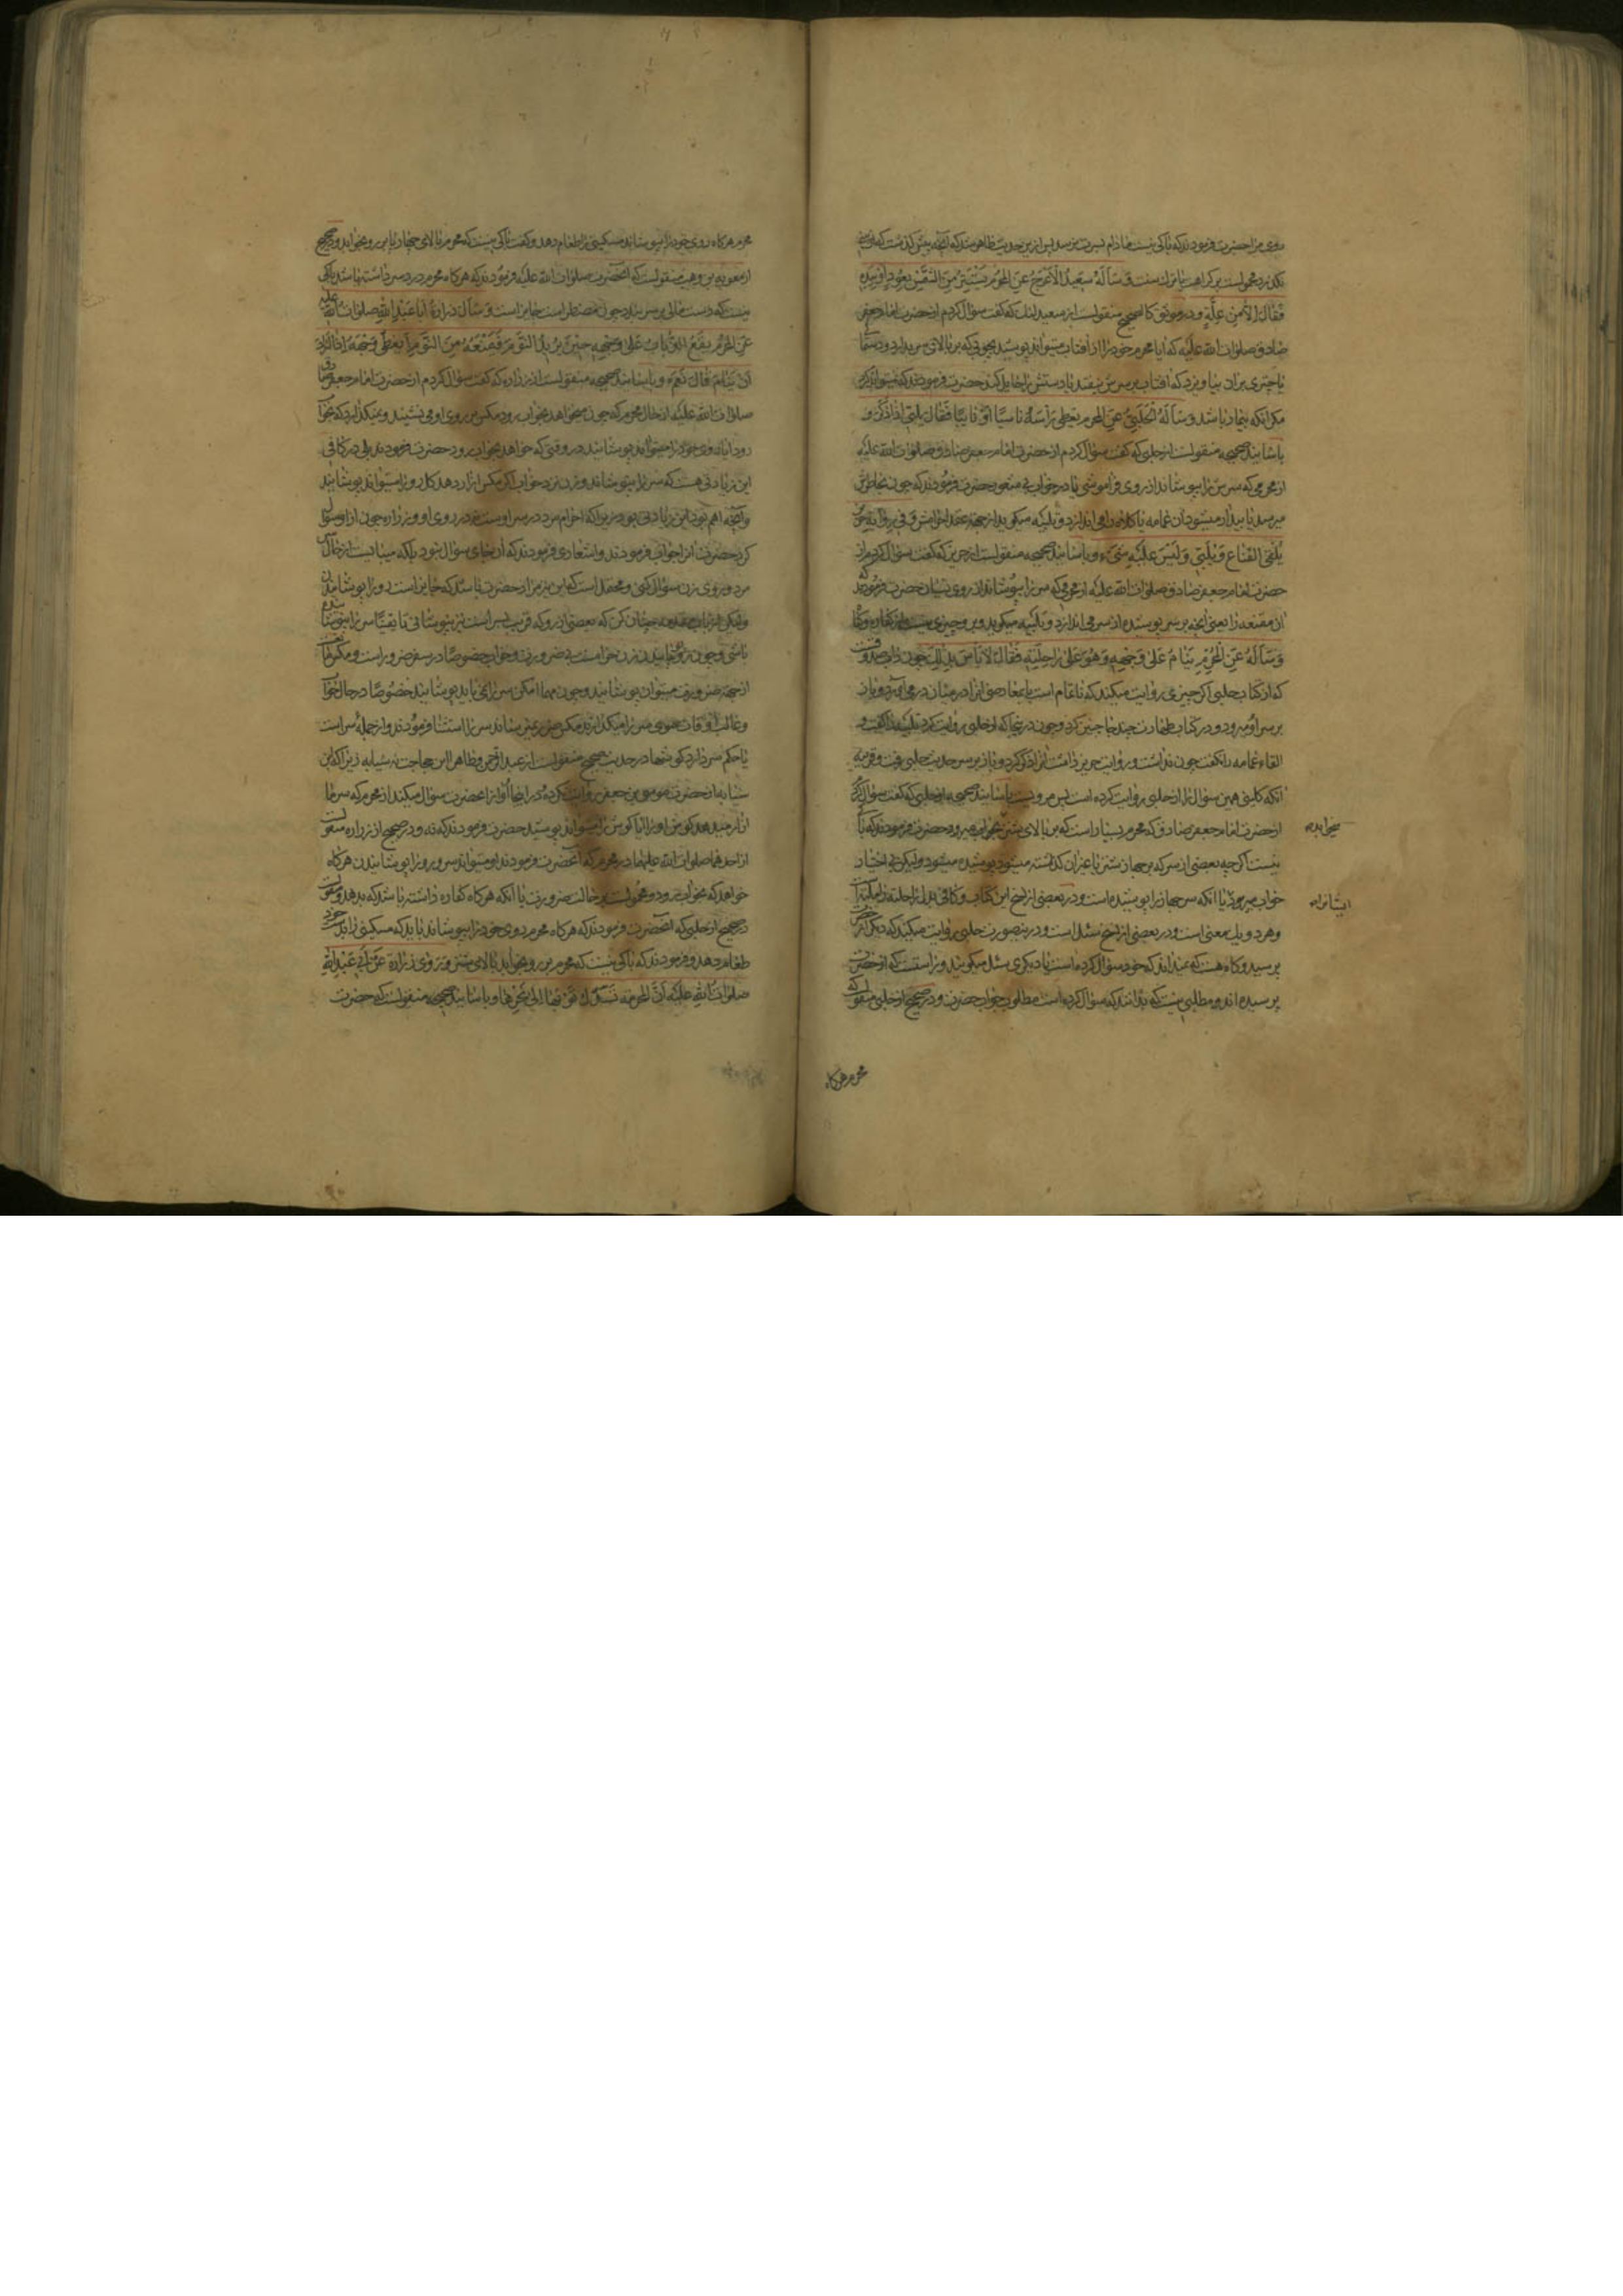 روی مرا حضرت فرمودند که باکی نیست مادام که بسرت نرسد پس ازین حدیث ظاهر میشود که آنچه پیش گذشت که
بر کراهت یا ترک سنت وَ سَأَلَهُ سَعِیدٌ الْأَعْرَجُ عَنِ الْمُحْرِمِ یَسْتَتِرُ مِنَ الشَّمْسِ بِعُودٍ أَوْ بِیَدِهِ
فَقَالَ لَا إِلَّا مِنْ عِلَّةٍ و در موثق کالصحیح منقولست از سعید که گفت سؤال کردم از حضرت امام جعفر
صادق صلوات الله علیه که آیا محرم خود را از آفتاب میتواند پوشید بچوبی که بر بالای سر بدارد و دستمال
یا چیزی بران بیاویزد که آفتاب بر سرش نیفتد یا دستش را حایل کند حضرت فرمودند که نمیتواند کرد
مگر آنکه بیمار باشد وَ سَأَلَهُ الْحَلَبِیُّ عَنِ الْمُحْرِمِ یُغَطِّی رَأْسَهُ نَاسِیًا أَوْ نَائِمًا فَقَالَ یُلَبِّی إِذَا ذَکَرَ و
باسانید صحیحه منقولست از حلبی که گفت سؤال کردم از حضرت امام جعفر صادق صلوات الله علیه
از محرمی که سرش را بپوشاند از روی فراموشی یا در خواب حضرت فرمودند که چون بخاطرش
میرسد یا بیدار میشود آن عمامه یا کلاه را می اندازد و تلبیه میگوید از جهة عقد احرامش و فی روایة حریز
یُلْقِی الْقِنَاعَ وَ یُلَبِّی وَ لَیْسَ عَلَیْهِ شَیْءٌ و باسانید صحیحه منقولست از حریز که گفت سؤال کردم از
حضرت امام جعفر صادق صلوات الله علیه از محرمی که سر را بپوشاند از روی نسیان حضرت فرمودند که
آن مقنعه را یعنی آنچه بر سر پوشیده از سر می اندازد و تلبیه میگوید و برو چیزی نیست از کفاره
وَ سَأَلَهُ عَنِ الْمُحْرِمِ یَنَامُ عَلَی وَجْهِهِ وَ هُوَ عَلَی رَاحِلَتِهِ فَقَالَ لَا بَأْسَ بِذَلِکَ چون داب صدوقست
که از کتاب حلبی اگر چیزی روایت میکند که ناتمام است یا بعد از آن در میان در می آورد و باز
بر سر او میرود و در کتاب طهارت چند جا چنین کرد و چون در اینجا که از حلبی روایت کرد تلبیه را گفت و
القاء عمامه را نگفت چون نداشت و روایت حریز داشت آنرا ذکر کرد و باز بر سر حدیث حلبی رفت و قرینه
آنکه کلینی همین سؤال را از حلبی روایت کرده است پس مرویست باسانید صحیحه از حلبی که گفت سؤال کردم
از حضرت امام جعفر صادق که محرم بسیار است که بر بالای شتر بخواب میرود حضرت فرمودند که باکی
نیست اگرچه بعضی از سر که بر جهاز شتر یا غیر آن گذاشته میشود پوشیده میشود ولیکن بی اختیار
خواب میرود یا آنکه سر جهاز را پوشیده است و در بعضی از نسخ این کتاب و کافی بدل راحلته زاملته است
و هر دو بیک معنی است و در بعضی از نسخ سئل است و درینصورت حلبی روایت میکند که دیگر از حضرت
پرسید و گاه هست که نمیداند که خود سؤال کرده است یا دیگری سئل میگویند و راستست که از حضرت
پرسیده اند و مطلبی نیست که بدانند که سؤال کرده است مطلوب جواب حضرتست و در صحیح از حلبی منقولست که
میخوابد
ایشانرا
محرم هرگاه
محرم هرگاه روی خود را بپوشاند مسکینی را طعام دهد و گفت باکی نیست که محرم بر بالای جهاز بر رو بخوابد و در صحیح
از معویه بن وهب منقولست که آنحضرت صلوات الله علیه فرمودند که هرگاه محرم درد سر داشته باشد باکی
نیست که دستمالی بر سر بندد چون مضطر است جایز است وَ سَأَلَ زُرَارَةُ أَبَا عَبْدِ اللَّهِ صلوات الله علیه
عَنِ الْمُحْرِمِ یَقَعُ الذُّبَابُ عَلَی وَجْهِهِ حِینَ یُرِیدُ النَّوْمَ فَیَمْنَعُهُ مِنَ النَّوْمِ أَ یُغَطِّی وَجْهَهُ إِذَا أَرَادَ
أَنْ یَنَامَ قَالَ نَعَمْ و باسانید صحیحه منقولست از زراره که گفت سؤال کردم از حضرت امام جعفر صادق
صلوات الله علیه از حال محرم که چون میخواهد بخواب رود مگس بر روی او می نشیند و نمیگذارد که بخواب
رود آیا روی خود را میتواند پوشانید در وقتی که خواهد بخواب رود حضرت فرمودند بلی در کافی
این زیادتی هست که سر را نپوشاند و زن نزد خواب اگر مگس آزار دهد کل رو را میتواند پوشانید
و آنچه اهم بود این زیادتی بود زیرا که احرام مرد در سر اوست نه در روی او و زراره چون از او سؤال
کرد حضرت او را جواب فرمودند و اشعاری فرمودند که آن جای سؤال نبود بلکه میبایست از حال سر
مرد و روی زن سؤال کنی و محتمل است که این نیز مراد حضرت باشد که جایز است رو را پوشانیدن
ولیکن از باب مقدمه چنان کن که بعضی از رو که قریب بسر است نیز نپوشانی تا یقینا سر را نپوشانیده
باشی و چون رو پوشانیدن زن حرامست بی ضرورت و خواب خصوصا در سفر ضرور است و مگس هاست
از جهة ضرورت میتوان پوشانید و چون مهما امکن سر را نمی باید پوشانید خصوصا در حال خواب
و غالب اوقات سر را میگذارند مگس ضرر نمیرساند سر را استثنا فرمودند و از جمله سر است
یا حکم سر دارد گوشها در حدیث صحیح منقولست از عبد الرحمن و ظاهرا ابن حجاجست نه سیابه زیرا که ابن
سیابه از حضرت موسی بن جعفر روایت نکرده و در اینجا او از آنحضرت سؤال میکند از محرم که سرما
آزار میدهد گوش او را آیا گوش را میتواند پوشید حضرت فرمودند که نه و در صحیح از زراره منقولست
از احدهما صلوات الله علیهما در محرم که آنحضرت فرمودند او میتواند سر و رو را پوشانیدن هرگاه
خواهد که بخواب رود و محمولست بر حالت ضرورت یا آنکه هرگاه کفاره داشته باشد که بدهد و منقولست
در صحیح از حلبی که آنحضرت فرمودند که هرگاه محرم روی خود را بپوشاند باید که مسکینی را بدست خود
طعام دهد و فرمودند که باکی نیست که محرم بر رو بخوابد بالای شتر وَ رَوَی زُرَارَةُ عَنْ أَبِی عَبْدِ اللَّهِ
صلوات الله علیه أَنَّ الْمُحْرِمَةَ تَسْدُلُ ثَوْبَهَا إِلَی نَحْرِهَا و باسانید صحیحه منقولست که حضرت